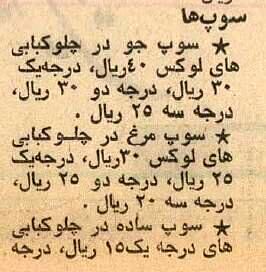 سوپ‌ها
★ سوپ جو در چلوکبابی
های لوکس ۴۰ریال، درجه‌یک
۳۰ ریال، درجه دو ۳۰ ریال،
درجه سه ۲۵ ریال .
★ سوپ مرغ در چلـوکبابی
های لوکس ۳۰ریال، درجه‌یک
۲۵ ریال، درجه دو ۲۵ ریال،
درجه سه ۲۰ ریال .
★ سوپ ساده در چلوکبابی
های درجه یک۱۵ ریال، درجه